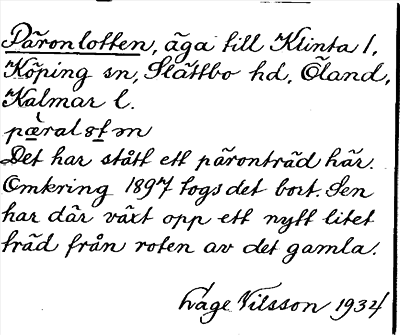 Päronlotten, äga till Klinta 1,
Köping sn, Slättbo hd, Öland,
Kalmar l.
pæralɔtən
Det har stått ett päronträd här.
Omkring 1897 togs det bort. Sen
har där växt opp ett nytt litet
träd från roten av det gamla.
Åge Nilsson 1934